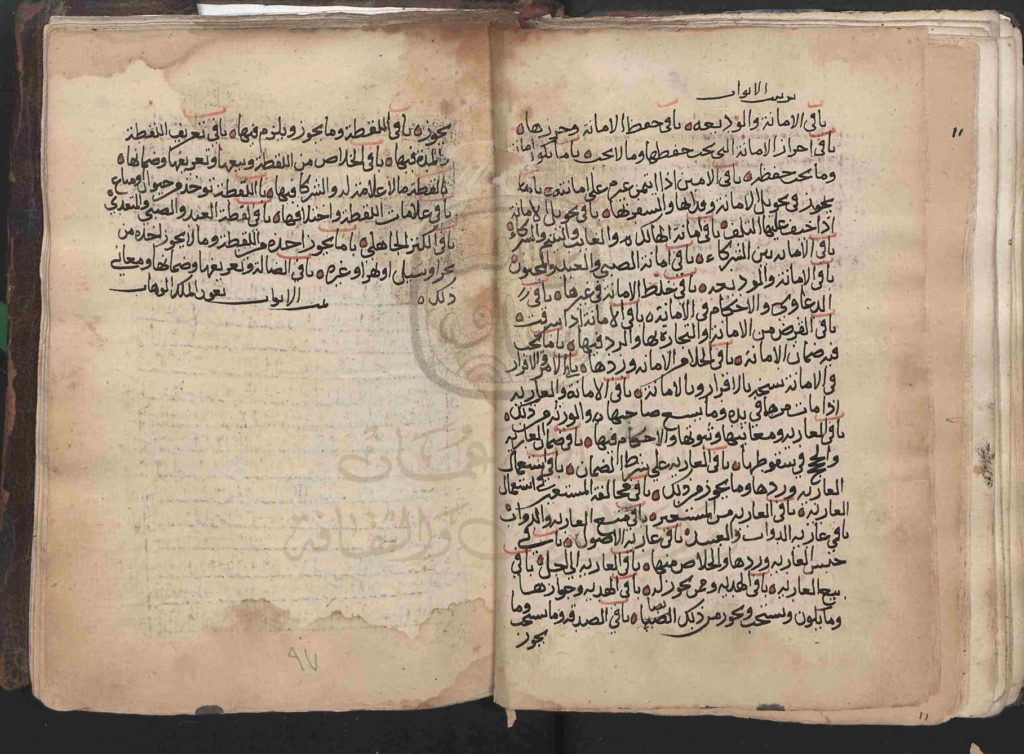 ترتيب الابواب
باب في الامانة والوديعه باب في حفظ الامانة وحرزها
باب في احراز الامانة التي يجب حفظها وما لا يجب باب ما يكون امانة
وما يجب حفظه باب في الامين اذا اتهم غرم على امانته باب ما
يجوز في تحويل الامانة وفدائها والسفر بها باب في تحويل الامانة
اذا خيف عليها التلف باب في امانة الهالك والغائب واليتيم والشركاء
باب في الامانة بين الشركاء باب في امانة الصبي والعبد والمجنون
باب في الامانة والوديعه باب في خلط الامانة في غيرها باب في
الدعاوي والاحكام في الامانة باب في الامانة اذا سرقت
باب في القرض من الامانة والتجارة بها والرد فيها باب ما يجب
فيه ضمان الامانة باب في الخلاص من الامانه وردها باب الامر في الاقرار
في الامانة باب في الامانة والعاريه
اذا مات من هي في يده وما يسع صاحبها والورثة من ذلك
باب في العاريه ومعانيها وثبوتها والاحكام فيها باب في ضمان العاريه
والحجج في سقوطها باب في العاريه على شرط الضمان باب في استعمال
العاريه وردها وما يجوز من ذلك باب في مخالفة المستعير في استعمال
العاريه باب في العاريه من المستعير باب في منع العاريه والدواب
باب في عارية الدواب والعبيد باب في عارية الاصول باب في
حبس العاريه وردها والخلاص منها باب في العاريه الى اجل باب في
بيع العاريه باب في الهديه وممن يجوز له باب في الهديه وجوازها
وما يكون ويستحب ويجوز من ذلك باب في الصدقه وما يستحب وما
يجوز
يجوز باب في اللقطة وما يجوز ويلزم فيها باب في تعريف اللقطة
والمدة فيها باب في الخلاص من اللقطة وبيعها وتعريفها وضمانها
باب في لقطة ما لا علامة له والشركا فيها باب اللقطة توخذ من حيوان او متاع
باب في علامات اللقطة واختلافها باب في لقطة العبد والصبي والتعدي
باب في الكنز الجاهلي باب ما يجوز اخذه من اللقطة وما لا يجوز اخذه من
بحر او سيل او نهر او غيره باب في الضالة وتعريفها وضمانها ومعاني
ذلك تمت الابواب بعون الملك الوهاب
٩٧
١١
١١